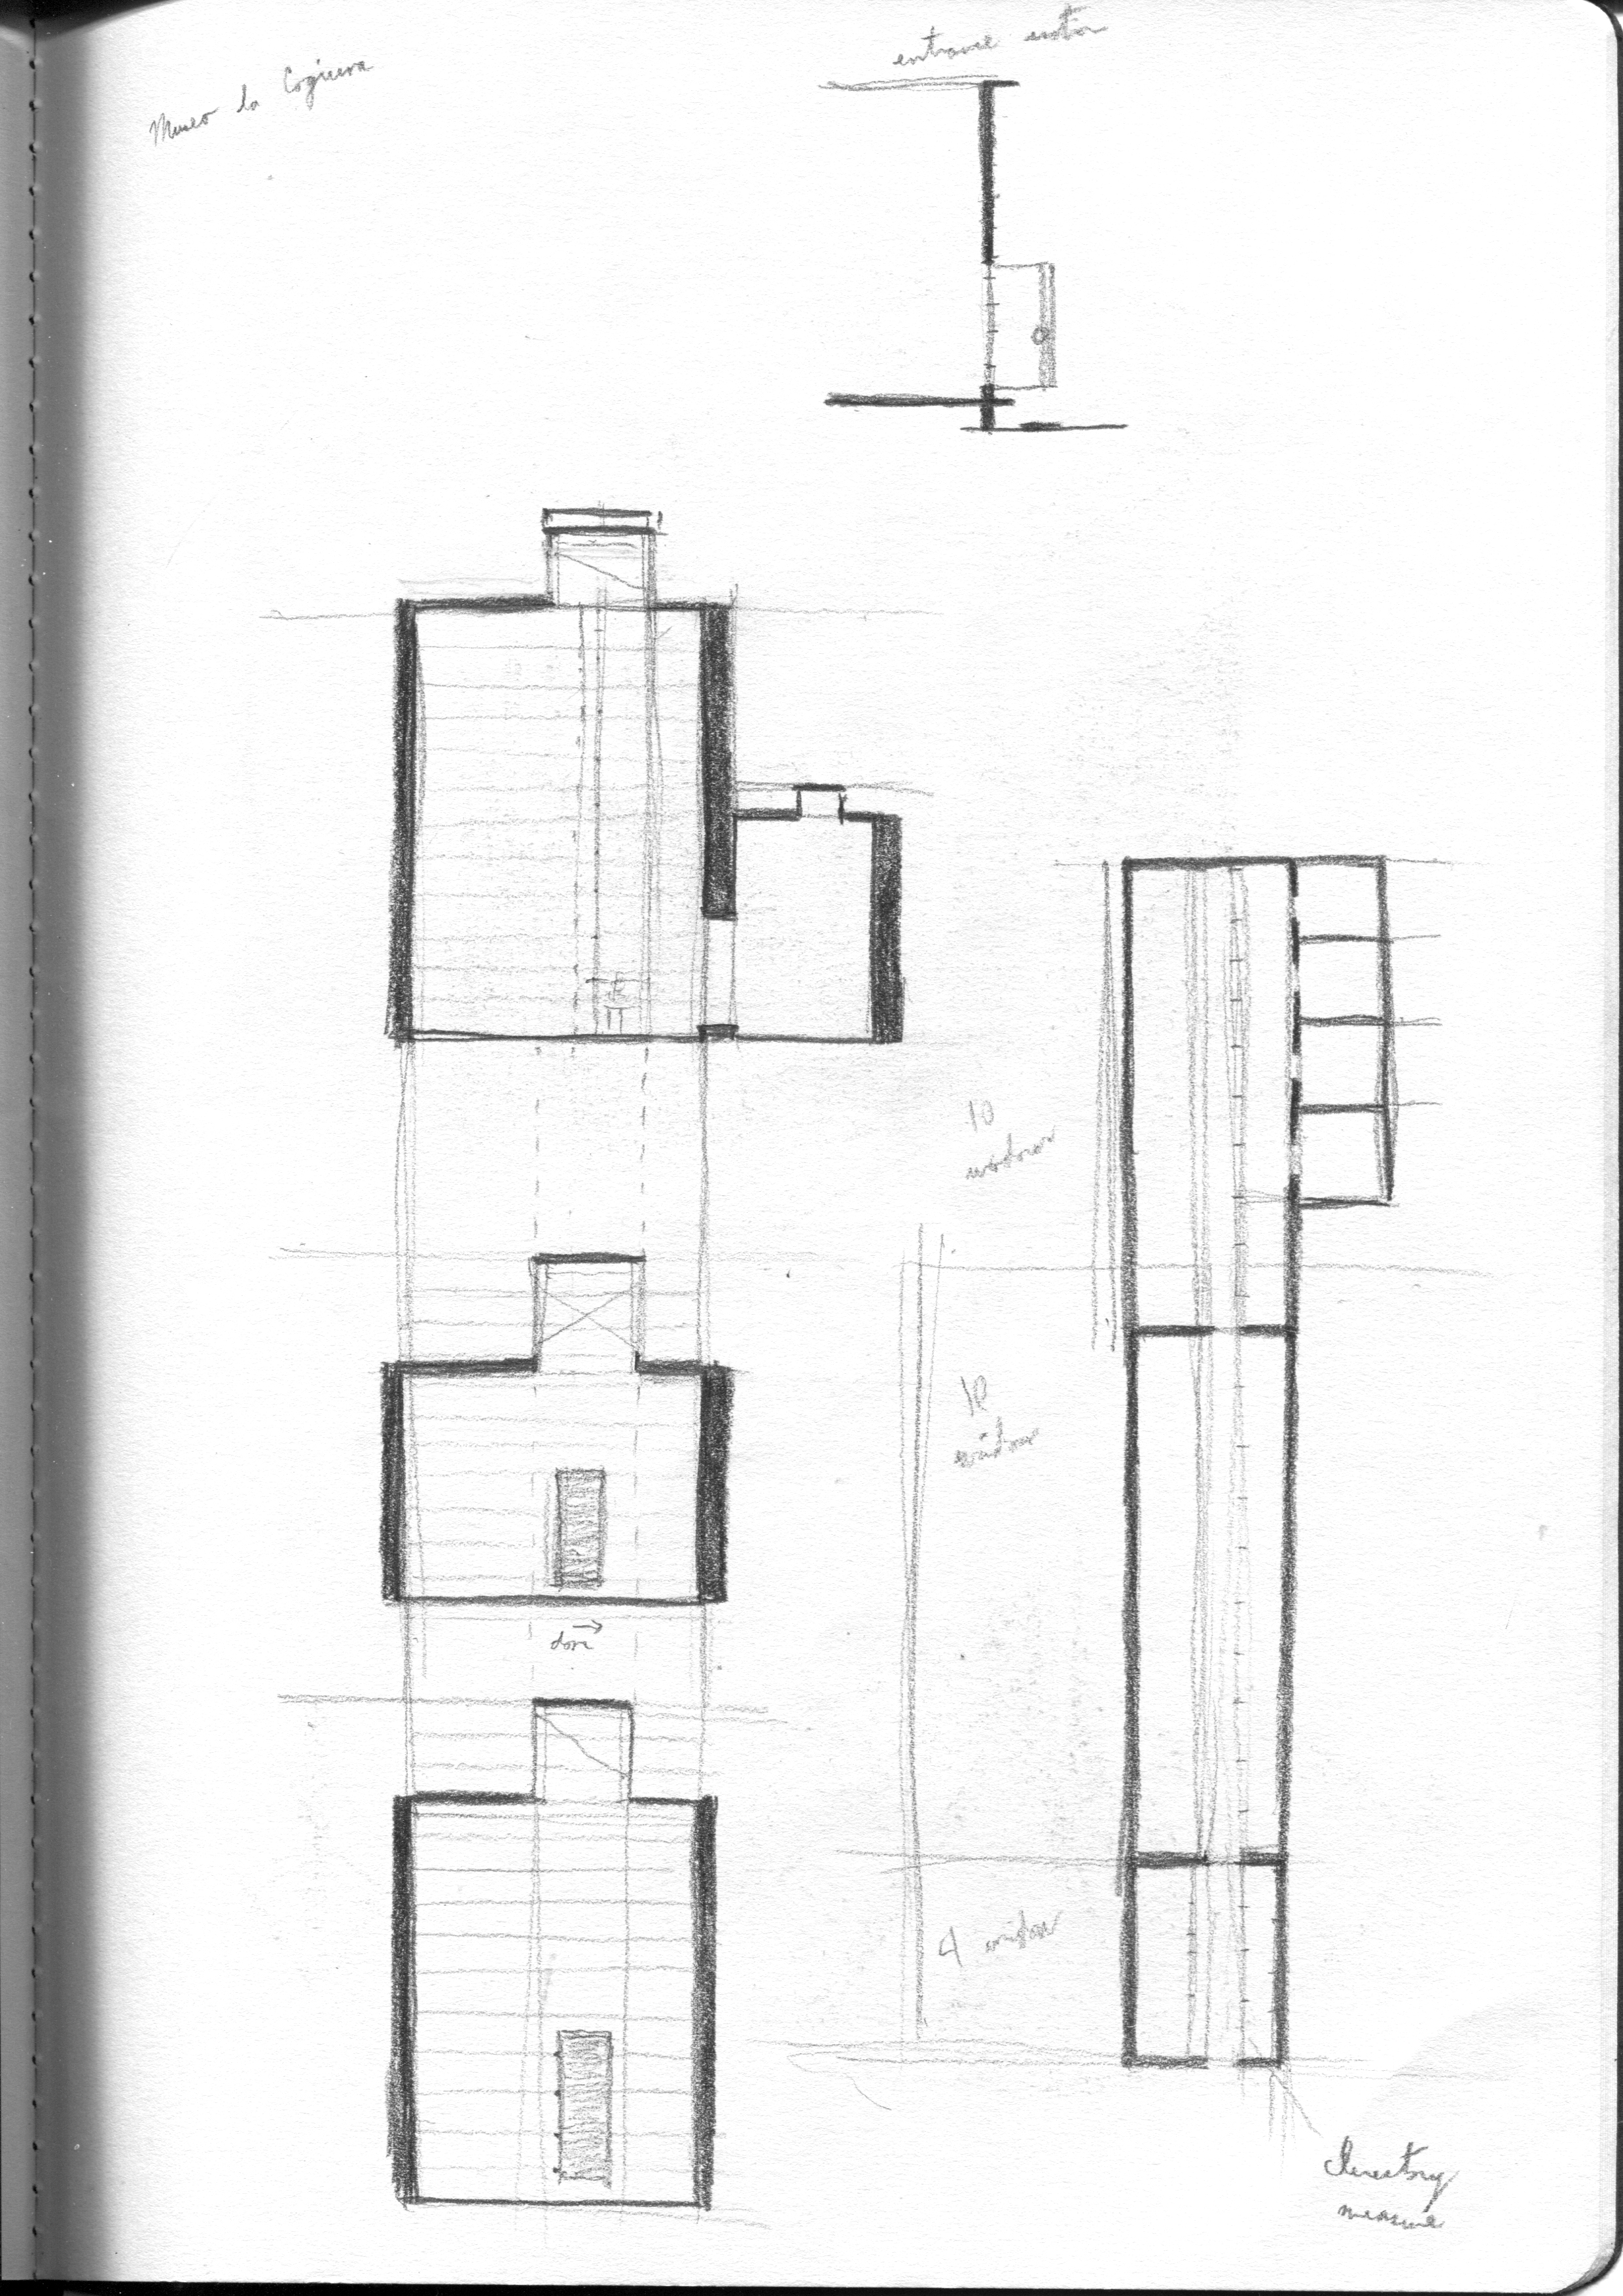 Museo la Cogiuera
entrance section
10
window
12
window
door
4 window
Clerestory
measure